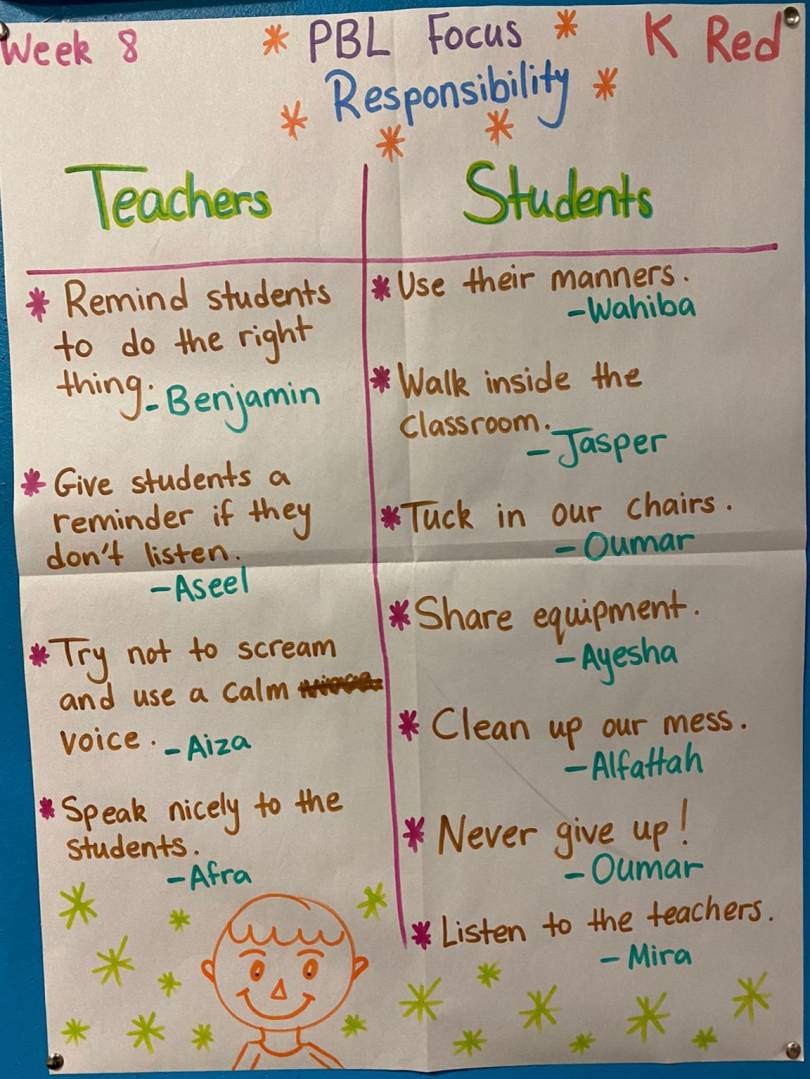 Week 8
* PBL Focus *
K Red
Responsibility
Teachers
* Remind students
to do the right
thing. - Benjamin
* Give students a
reminder if they
don't listen.
- Aseel
* Try not to scream
and use a calm
voice. - Aiza
* Speak nicely to the
students.
- Afra
Students
* Use their manners.
- Wahiba
* Walk inside the
classroom.
- Jasper
* Tuck in our chairs.
- Oumar
* Share equipment.
- Ayesha
* Clean up our mess.
- Alfattah
* Never give up!
- Oumar
* Listen to the teachers.
- Mira